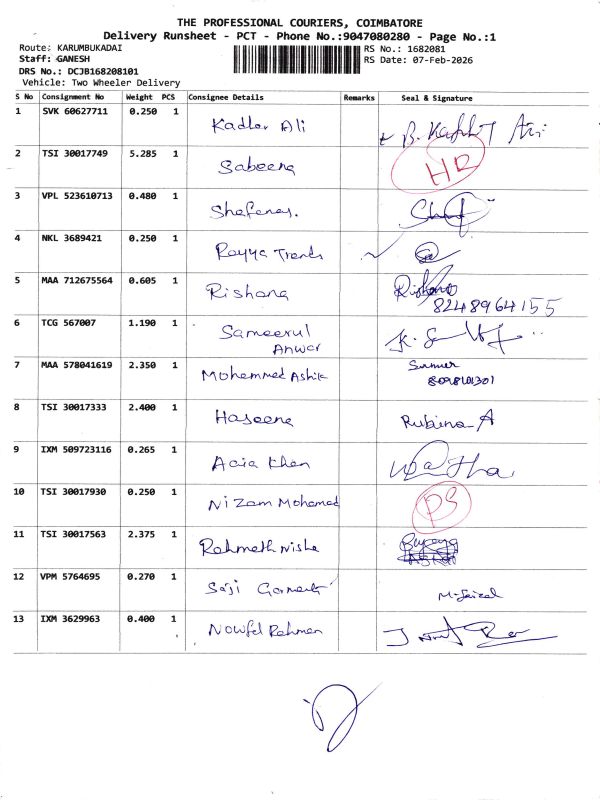 THE PROFESSIONAL COURIERS, COIMBATORE
Delivery Runsheet - PCT - Phone No.:9047080280 - Page No.:1
Route: KARUMBUKADAI
RS No.: 1682081
Staff: GANESH
RS Date: 07-Feb-2026
DRS No.: DCJB168208101
Vehicle: Two Wheeler Delivery
S No Consignment No Weight PCS Consignee Details Remarks Seal & Signature
1 SVK 60627711 0.250 1 Kadler Ali
2 TSI 30017749 5.285 1 Sabeena HR
3 VPL 523610713 0.480 1 Shefenas.
4 NKL 3689421 0.250 1 Rayya Trends
5 MAA 712675564 0.605 1 Rishana
8248964155
6 TCG 567007 1.190 1 Sameerul
Anwar
7 MAA 578041619 2.350 1 Mohammed Ashik
8 TSI 30017333 2.400 1 Haseena Rubina A
9 IXM 509723116 0.265 1 Khan
10 TSI 30017930 0.250 1 Nizam Mohamed PS
11 TSI 30017563 2.375 1 Rahmeth nisha
12 VPM 5764695 0.270 1 Saji M. Faizal
13 IXM 3629963 0.400 1 Nowfel Rahman